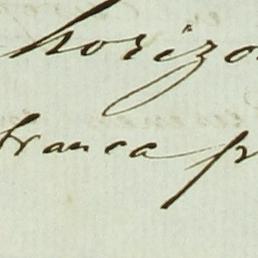 horizo
franca p